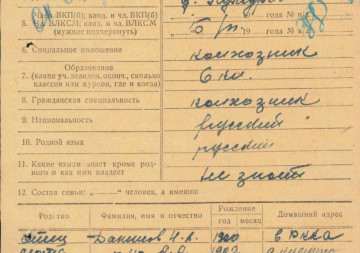 Член ВКП(б); канд. в чл. ВКП(б)
5. Чл. ВЛКСМ; канд. в чл. ВЛКСМ
(нужное подчеркнуть)
б/п 19 года №
6. Социальное положение колхозник
Образование
7. (какие уч. заведен. оконч., сколько 6 кл.
классов или курсов, где и когда)
8. Гражданская специальность колхозник
9. Национальность русский
10. Родной язык русский
11. Какие языки знает кроме род-
ного и как ими владеет не знает
12. Состав семьи: „——“ человек, а именно:
Родство Фамилия, имя и отчество Рождение Домашний адрес
год месяц
отец Данилов И.А. 1900 в РККА